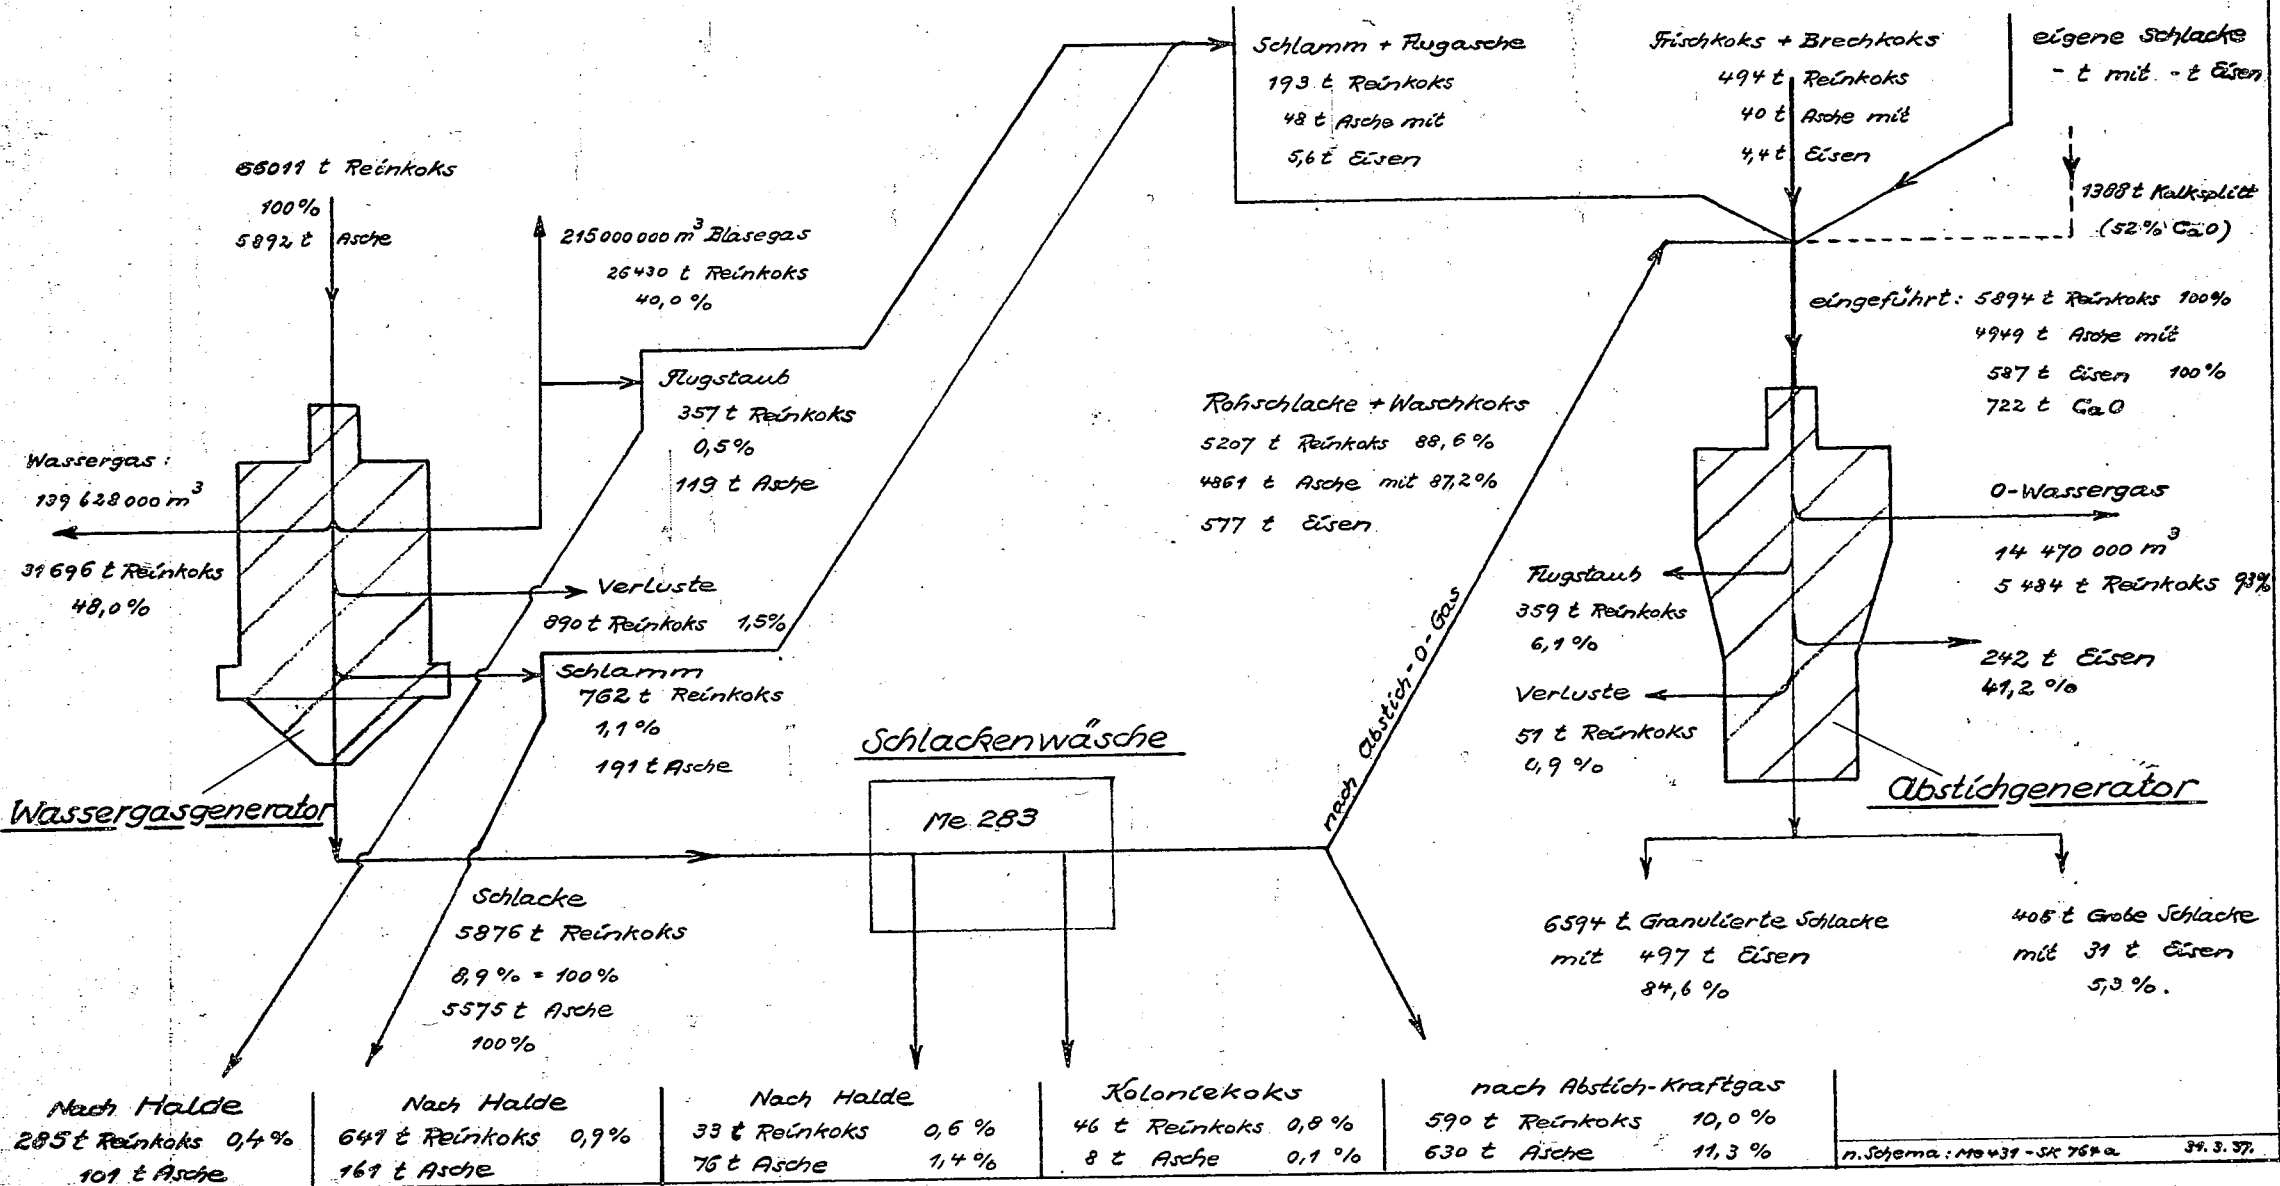 66011 t Reinkoks
100%
5892 t Asche
215000000 m³ Blasegas
26430 t Reinkoks
40,0 %
Flugstaub
357 t Reinkoks
0,5%
119 t Asche
Wassergas:
139 628 000 m³
31696 t Reinkoks
48,0 %
Verluste
890 t Reinkoks 1,5%
Schlamm
762 t Reinkoks
1,1 %
191 t Asche
Wassergasgenerator
Schlacke
5876 t Reinkoks
8,9 % = 100 %
5575 t Asche
100 %
Schlackenwäsche
Me 283
Schlamm + Flugasche
193 t Reinkoks
48 t Asche mit
5,6 t Eisen
Frischkoks + Brechkoks
494 t Reinkoks
40 t Asche mit
4,4 t Eisen
eigene Schlacke
- t mit - t Eisen
1388 t Kalksplitt
(52 % CaO)
eingeführt: 5894 t Reinkoks 100%
4949 t Asche mit
587 t Eisen 100%
722 t CaO
Rohschlacke + Waschkoks
5207 t Reinkoks 88,6 %
4861 t Asche mit 87,2%
577 t Eisen
nach Abstich-O-Gas
O-Wassergas
14 470 000 m³
5 484 t Reinkoks 93%
Flugstaub
359 t Reinkoks
6,1 %
242 t Eisen
41,2 %
Verluste
51 t Reinkoks
0,9 %
Abstichgenerator
6594 t Granulierte Schlacke
mit 497 t Eisen
84,6 %
405 t Grobe Schlacke
mit 31 t Eisen
5,3 %.
Nach Halde
285 t Reinkoks 0,4 %
101 t Asche
Nach Halde
641 t Reinkoks 0,9 %
161 t Asche
Nach Halde
33 t Reinkoks 0,6 %
76 t Asche 1,4 %
Koloniekoks
46 t Reinkoks 0,8 %
8 t Asche 0,1 %
nach Abstich-Kraftgas
590 t Reinkoks 10,0 %
630 t Asche 11,3 %
n. Schema: Me 431 - SK 764 a 31.3.37.